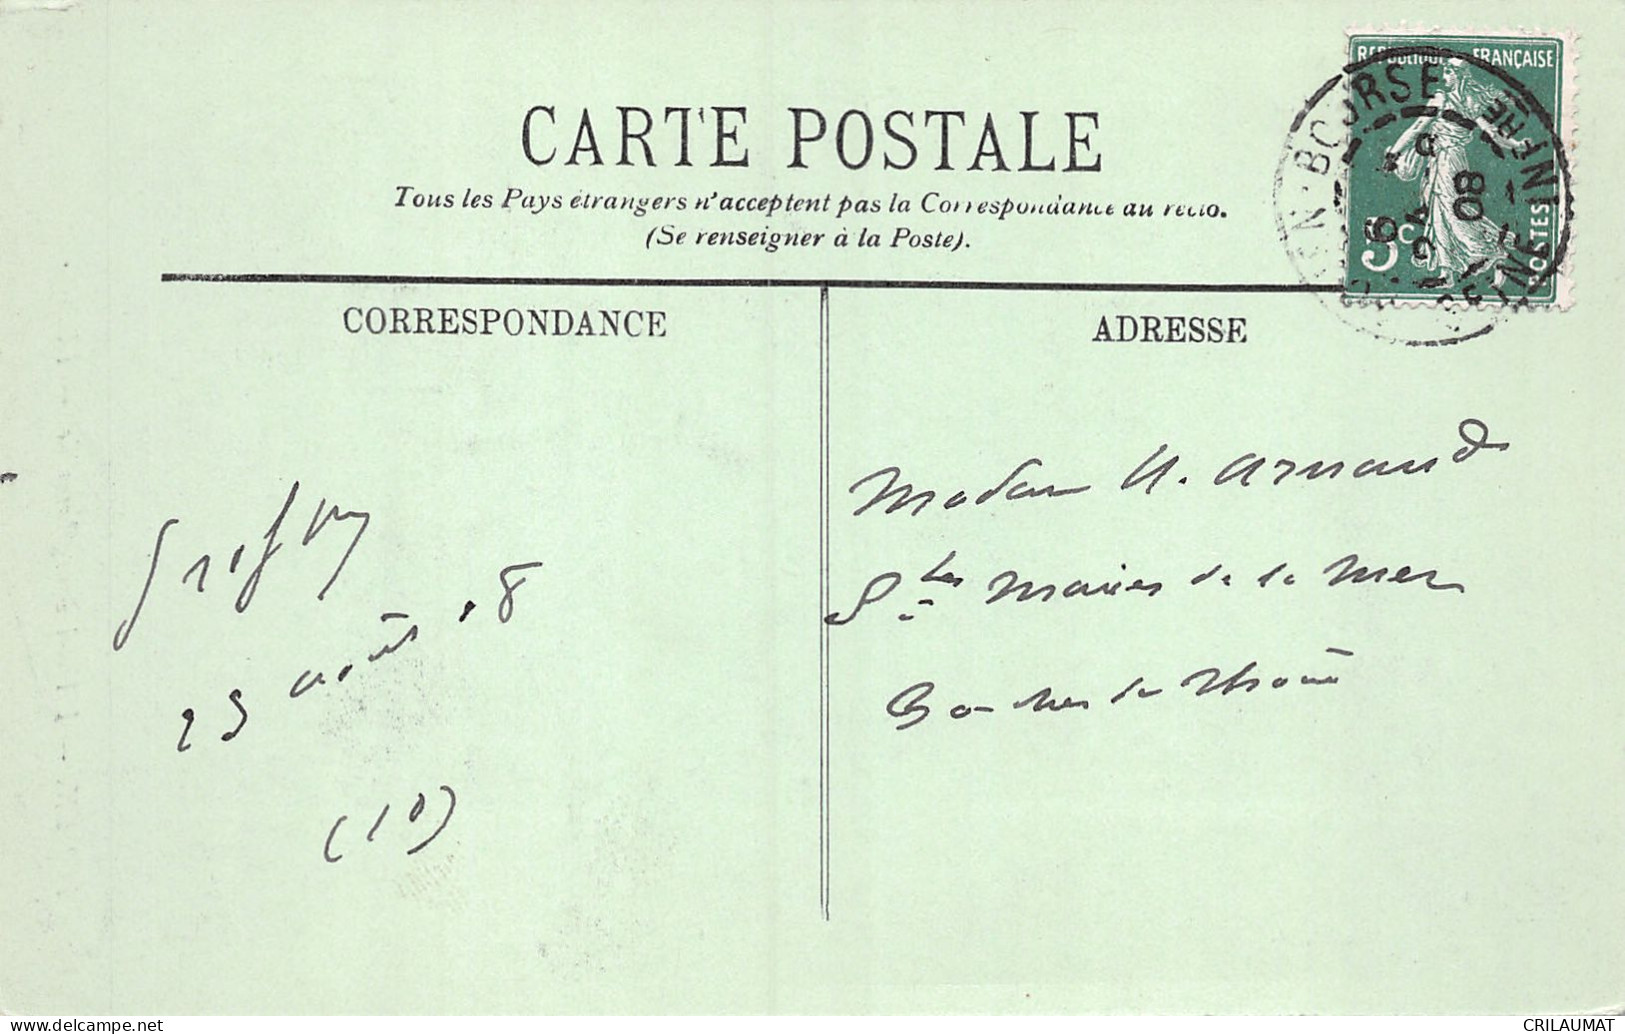 CARTE POSTALE
Tous les Pays étrangers n'acceptent pas la Correspondance au recto.
(Se renseigner à la Poste).
REPUBLIQUE FRANÇAISE
5c
POSTES
BOURSE
SEINE INFRE
08
CORRESPONDANCE
ADRESSE
23 août 08
(10)
Madame A. Arnaud
Stes Maries de la Mer
Bouches du Rhône
CRILAUMAT